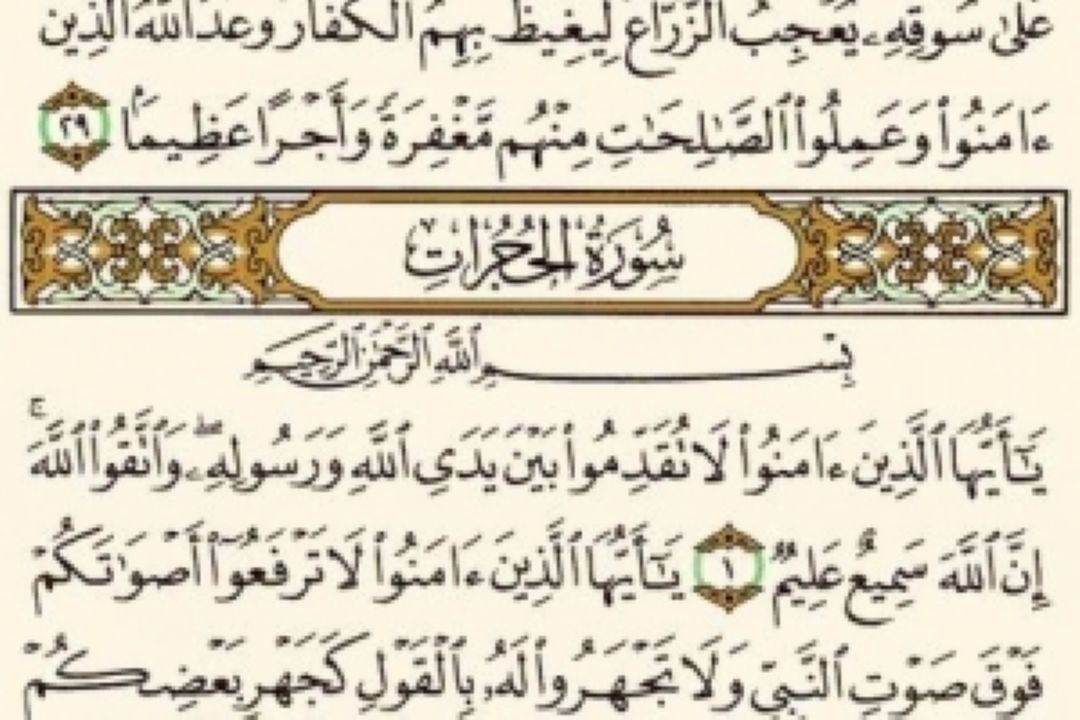 عَلَىٰ سُوقِهِۦ يُعۡجِبُ ٱلزُّرَّاعَ لِيَغِيظَ بِهِمُ ٱلۡكُفَّارَۗ وَعَدَ ٱللَّهُ ٱلَّذِينَ
ءَامَنُواْ وَعَمِلُواْ ٱلصَّٰلِحَٰتِ مِنۡهُم مَّغۡفِرَةٗ وَأَجۡرًا عَظِيمَۢا ٢٩
سُورَةُ الحُجُرَاتِ
بِسۡمِ ٱللَّهِ ٱلرَّحۡمَٰنِ ٱلرَّحِيمِ
يَٰٓأَيُّهَا ٱلَّذِينَ ءَامَنُواْ لَا تُقَدِّمُواْ بَيۡنَ يَدَيِ ٱللَّهِ وَرَسُولِهِۦۖ وَٱتَّقُواْ ٱللَّهَۚ
إِنَّ ٱللَّهَ سَمِيعٌ عَلِيمٞ ١ يَٰٓأَيُّهَا ٱلَّذِينَ ءَامَنُواْ لَا تَرۡفَعُوٓاْ أَصۡوَٰتَكُمۡ
فَوۡقَ صَوۡتِ ٱلنَّبِيِّ وَلَا تَجۡهَرُواْ لَهُۥ بِٱلۡقَوۡلِ كَجَهۡرِ بَعۡضِكُمۡ